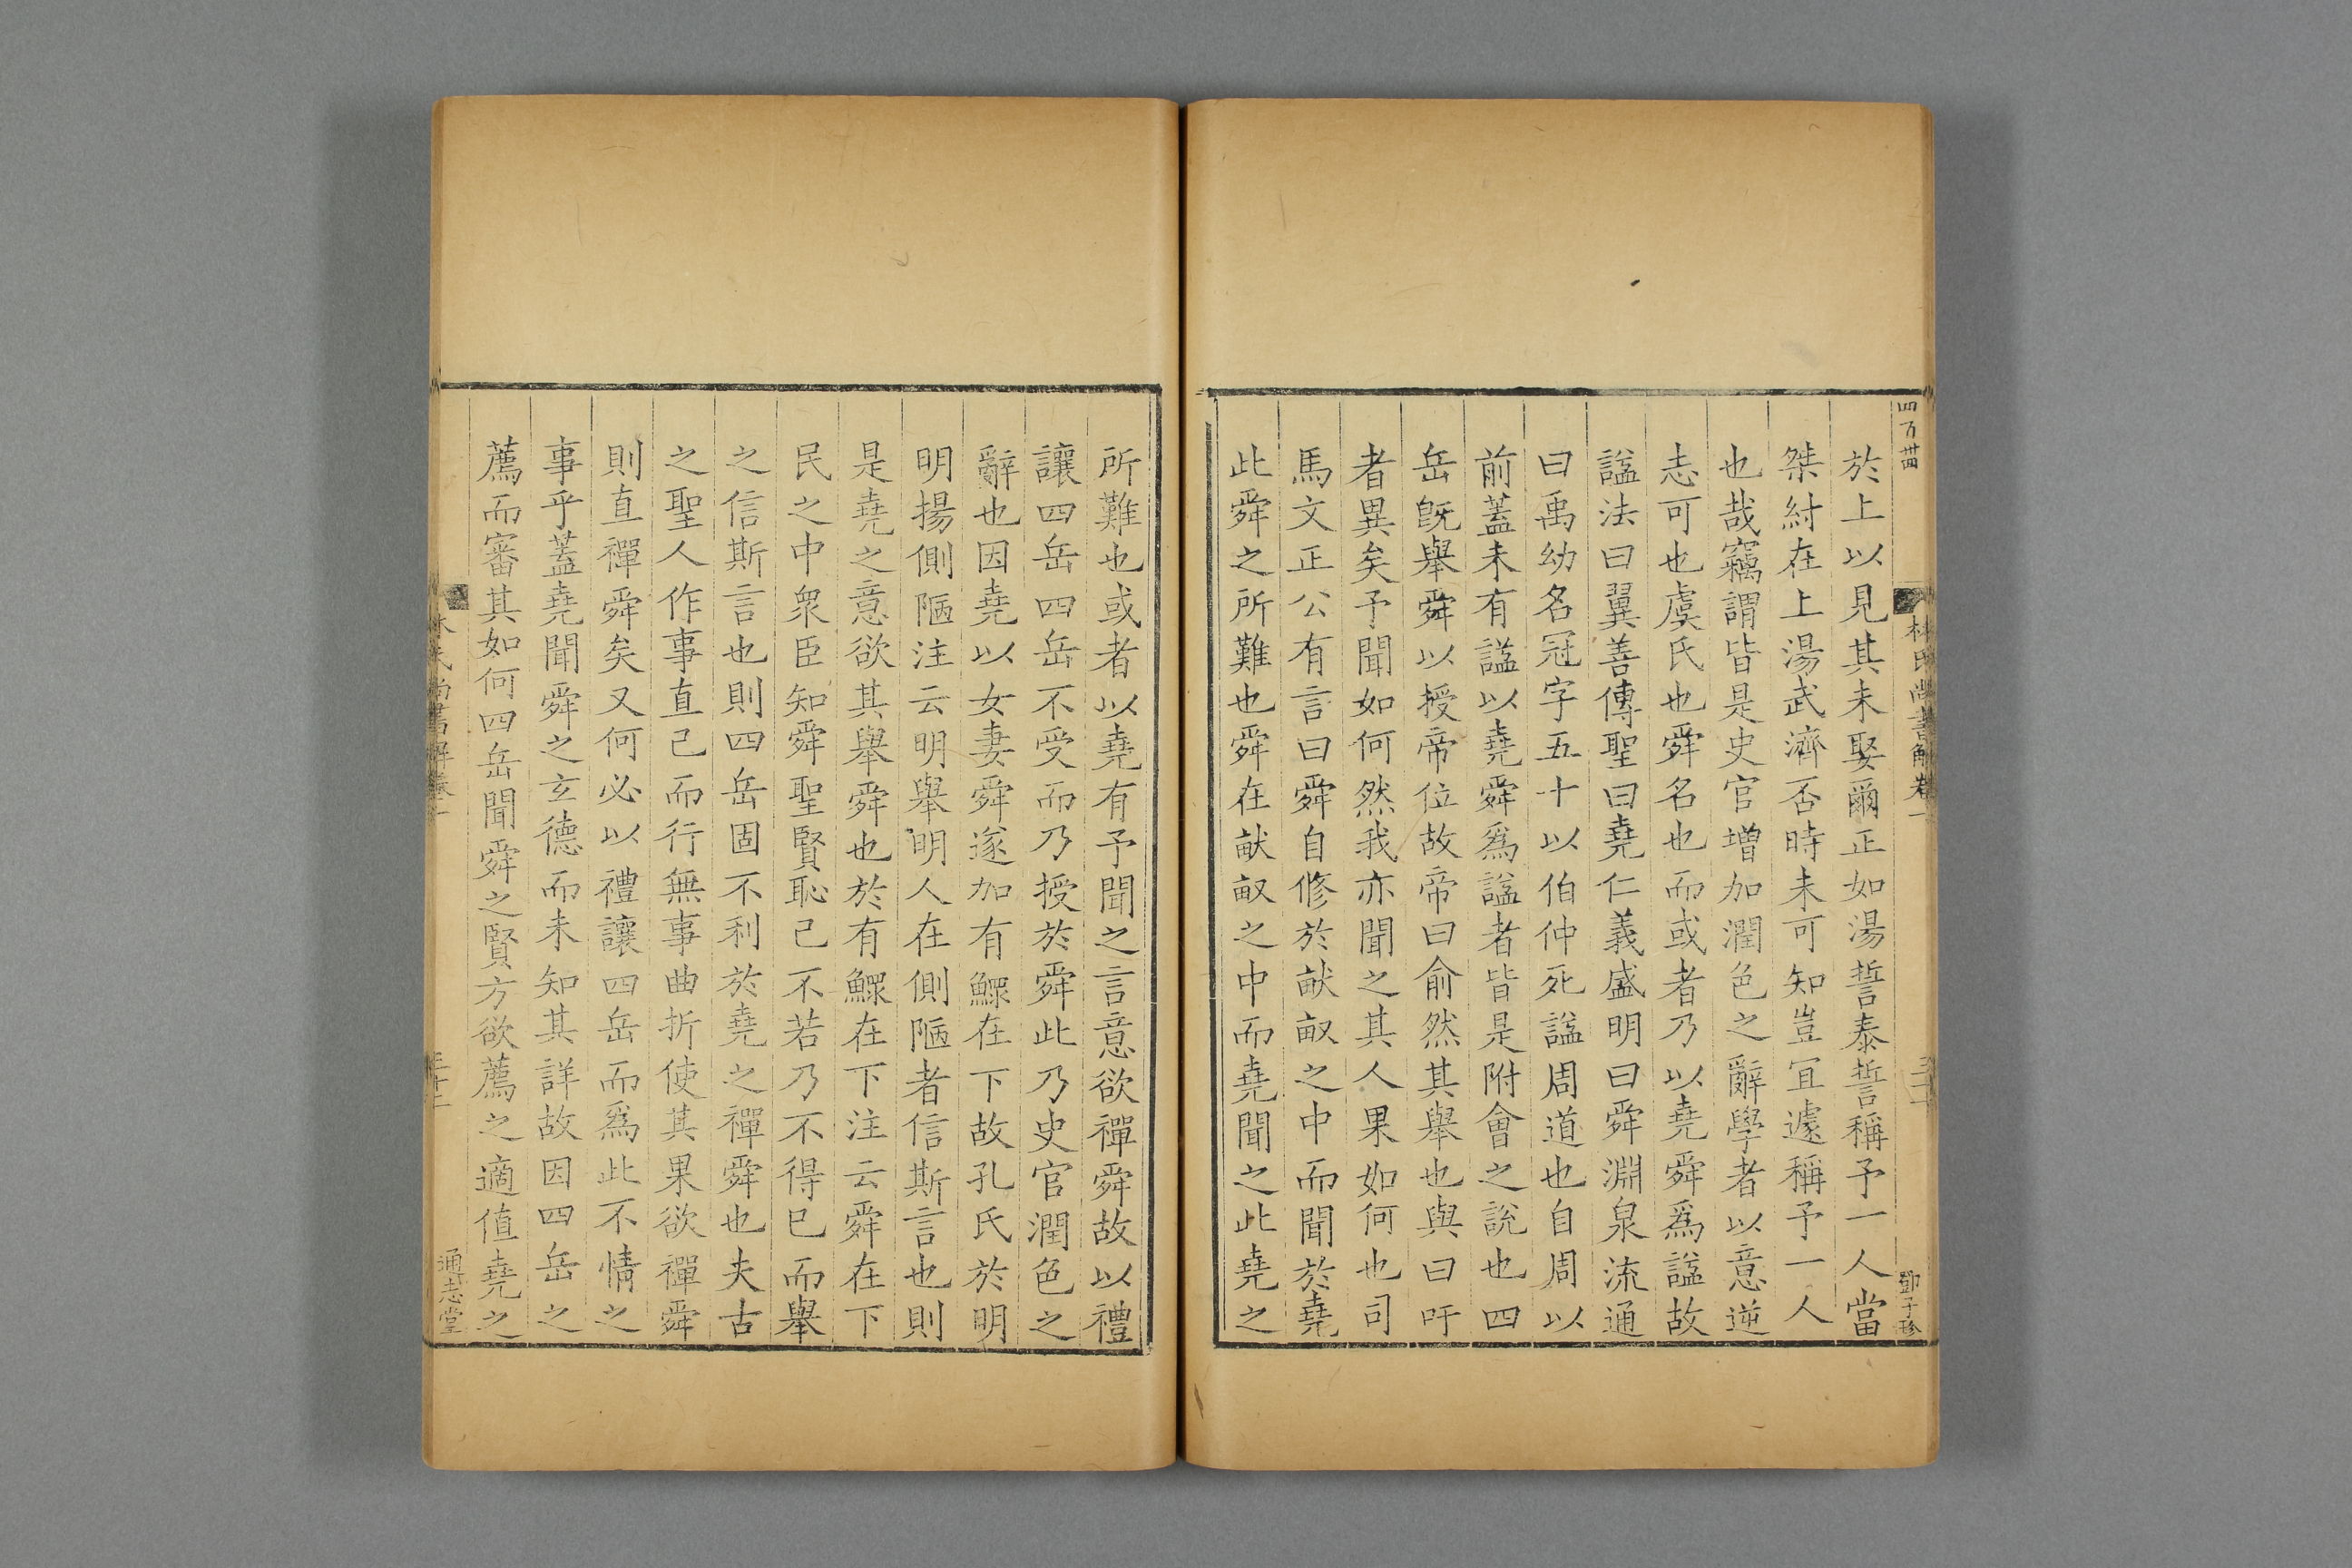 四百卌
林氏尚書解卷一
鄧子珍
於上以見其未娶爾正如湯誓泰誓稱予一人當
桀紂在上湯武濟否時未可知豈冝遽稱予一人
也哉竊謂皆是史官增加潤色之辭學者以意逆
志可也虞氏也舜名也而或者乃以堯舜爲諡故
諡法曰翼善傳聖曰堯仁義盛明曰舜淵泉流通
曰禹幼名冠字五十以伯仲死諡周道也自周以
前蓋未有諡以堯舜爲諡者皆是附會之說也四
岳旣舉舜以授帝位故帝曰俞然其舉也與曰吁
者異矣予聞如何然我亦聞之其人果如何也司
馬文正公有言曰舜自修於畎畝之中而聞於堯
此舜之所難也舜在畎畝之中而堯聞之此堯之
所難也或者以堯有予聞之言意欲禪舜故以禮
讓四岳四岳不受而乃授於舜此乃史官潤色之
辭也因堯以女妻舜遂加有鰥在下故孔氏於明
明揚側陋注云明舉明人在側陋者信斯言也則
是堯之意欲其舉舜也於有鰥在下注云舜在下
民之中衆臣知舜聖賢恥己不若乃不得已而舉
之信斯言也則四岳固不利於堯之禪舜也夫古
之聖人作事直己而行無事曲折使其果欲禪舜
則直禪舜矣又何必以禮讓四岳而爲此不情之
事乎蓋堯聞舜之玄德而未知其詳故因四岳之
薦而審其如何四岳聞舜之賢方欲薦之適值堯之
林氏尚書解卷一
通志堂